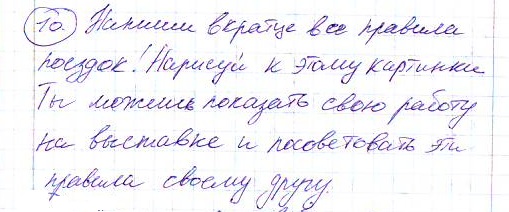 10. Напиши вкратце все правила
поездок! Нарисуй к этому картинки
Ты можешь показать свою работу
на выставке и посоветовать эти
правила своему другу.